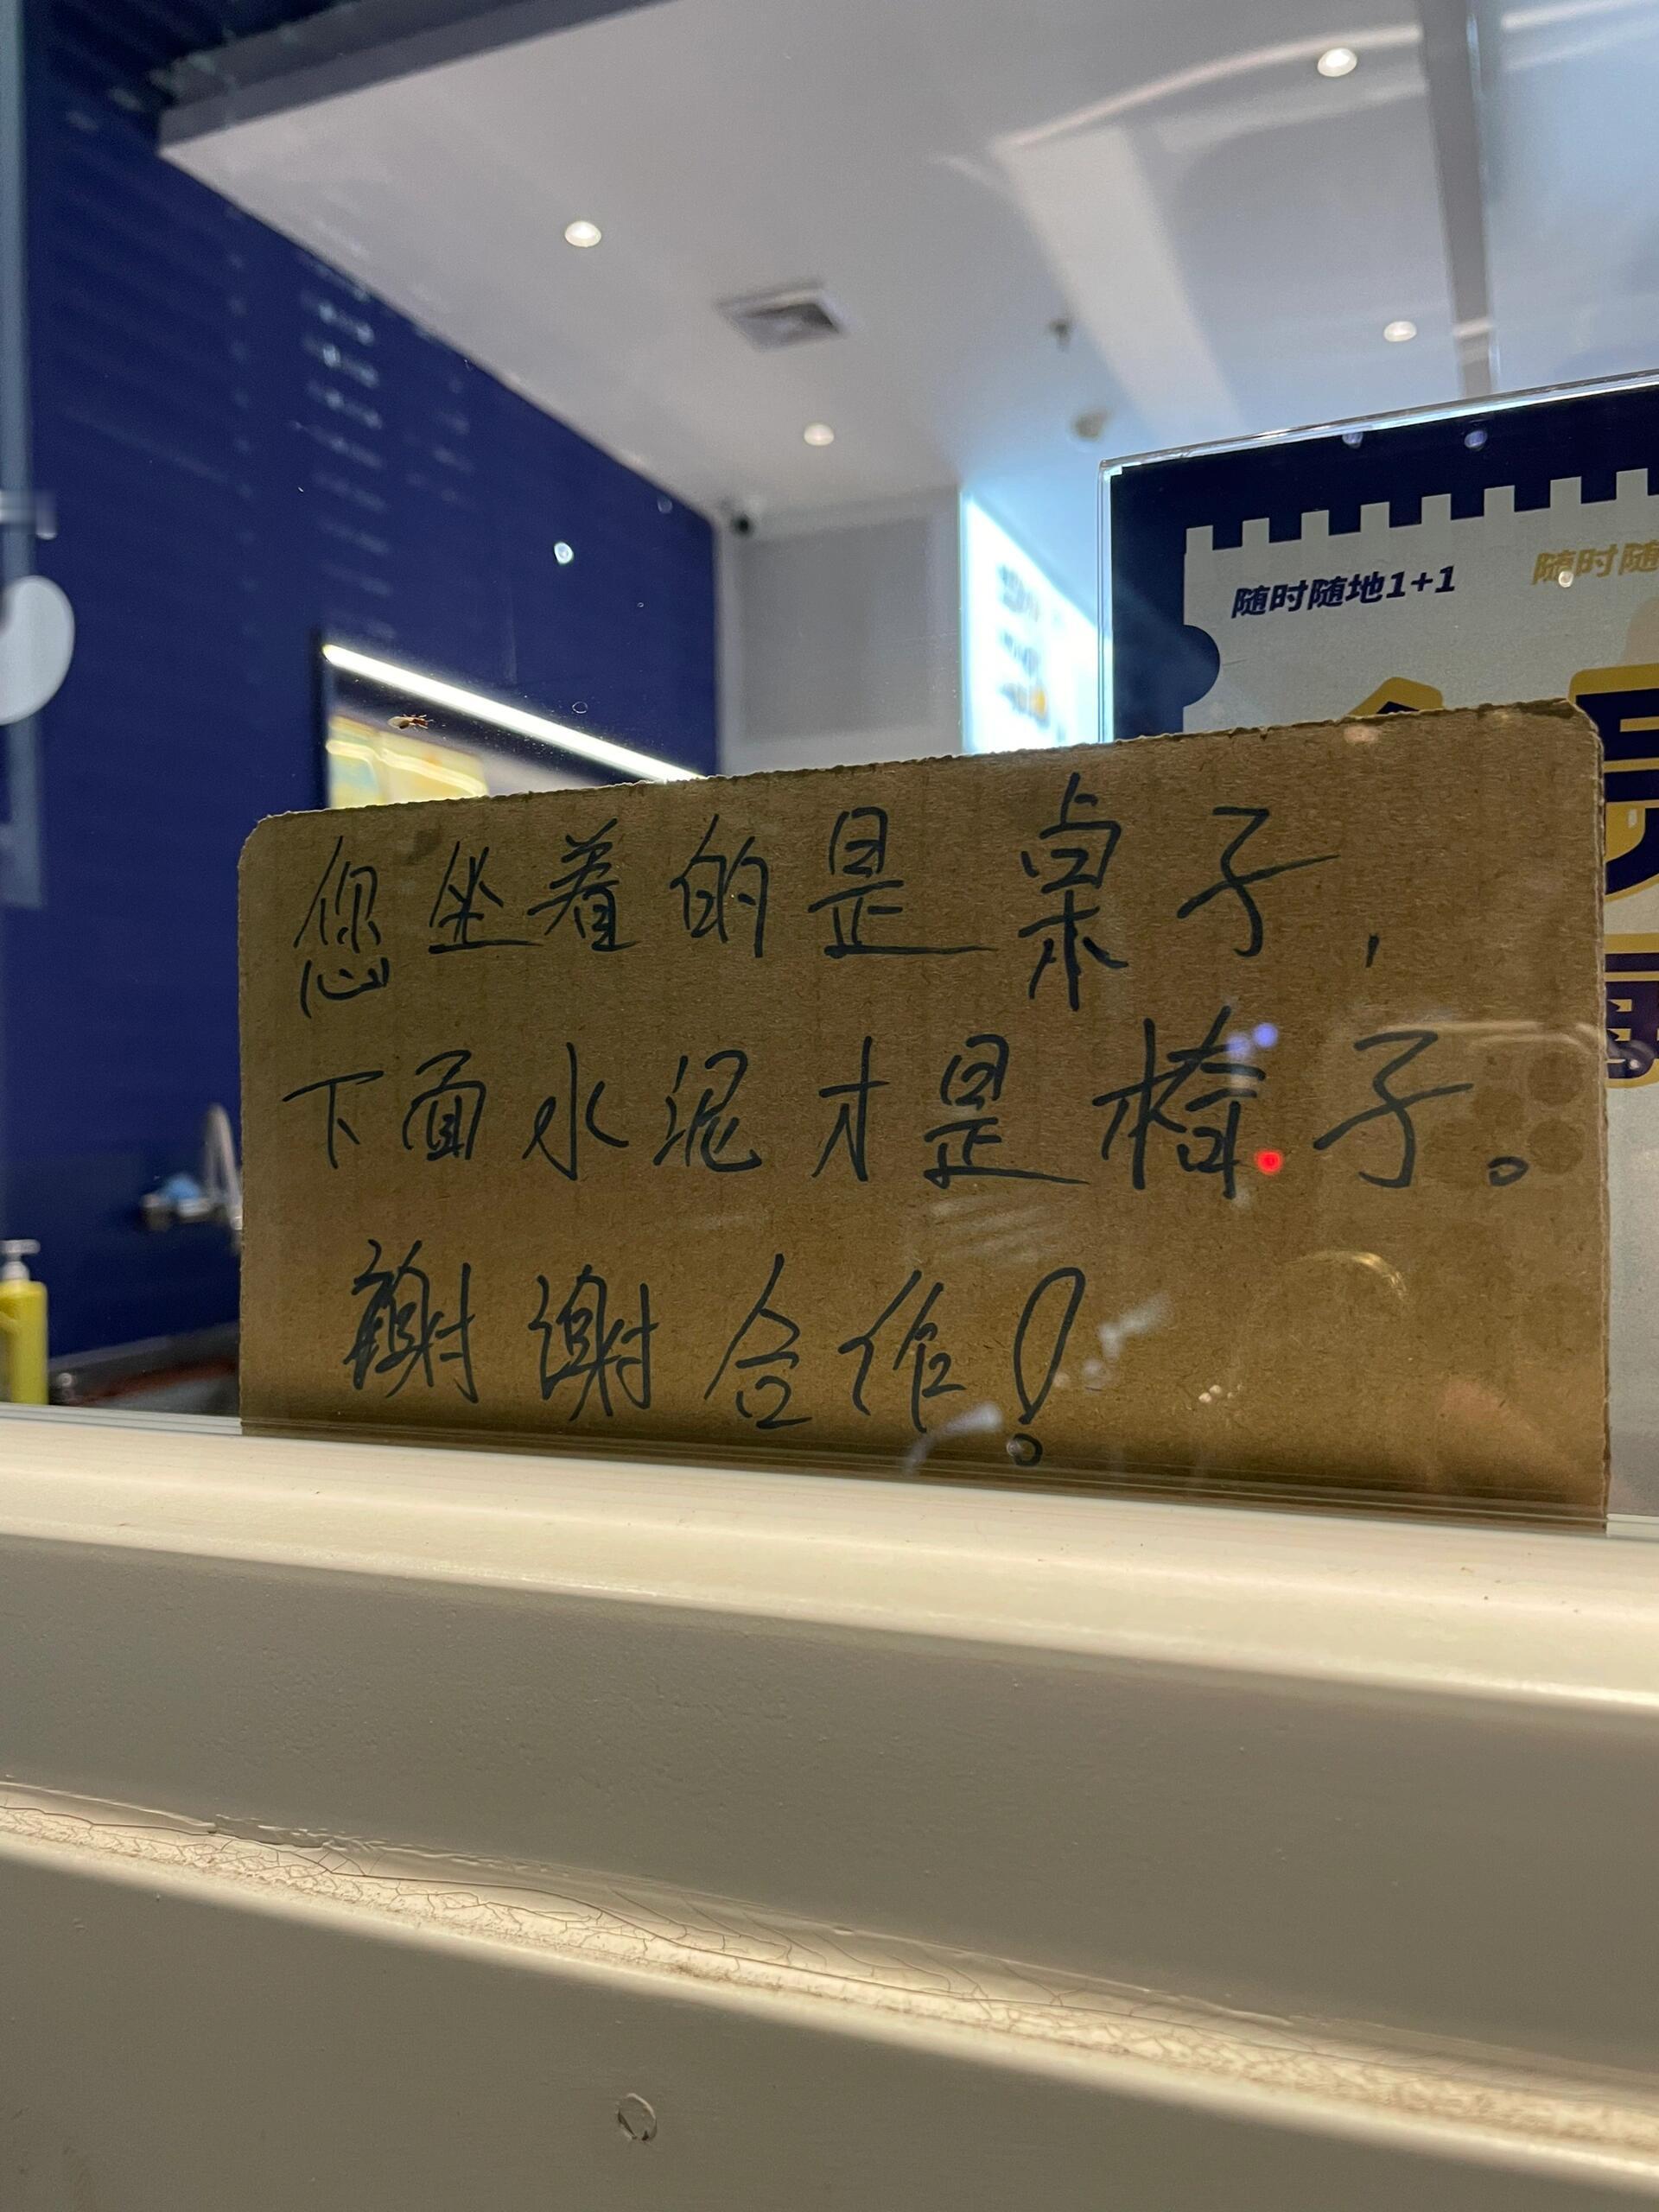 随时随地1+1
随时随
您坐着的是桌子,
下面水泥才是椅子。
謝谢合作!